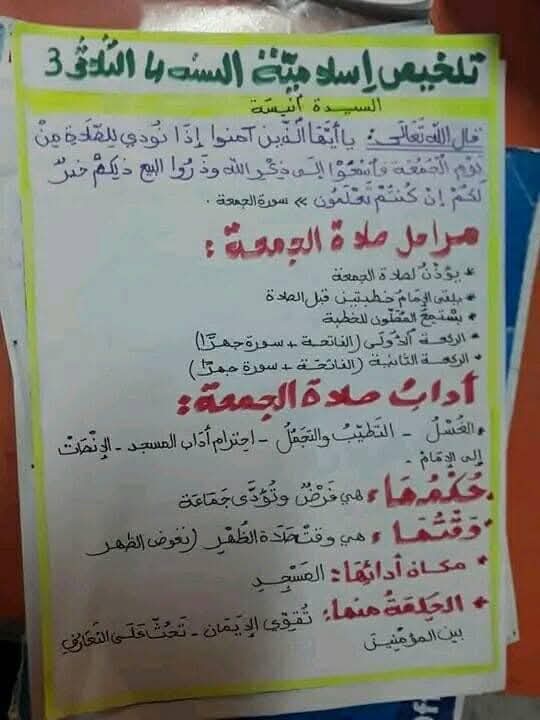 تلخيص إسلاميّة السنه 4 الثلاثي 3
السيدة أنيسة
قال الله تَعَالَى: يا أَيُّهَا الَّذِينَ آمنوا إِذَا نُودِي لِلصَّلَاةِ مِنْ
يَوْمِ الْجُمُعَةِ فَاسْعَوْا إِلَى ذِكْرِ الله وَذَرُوا البيع ذَلِكُمْ خَيْرٌ
لَكُمْ إِنْ كُنْتُمْ تَعْلَمُونَ » سورة الجمعة .
مراحل صلاة الجمعة :
* يؤذّنُ لصلاة الجمعة
* يلقي الإمامُ خطبتين قبل الصلاة
* يستمعُ المصلّون للخطبة
* الركعة الأولى (الفاتحة + سورة جهرًا)
* الركعة الثانية (الفاتحة + سورة جهرًا)
آدابُ صلاة الجمعة :
* الغُسْلُ - التَّطَيُّبُ والتَّجَمُّلُ - احترام آداب المسجد - الإنْصَاتُ
إلى الإمَامْ -
* حُكْمُهَا : هي فَرْضٌ وتُؤَدَّى جَمَاعَة
* وَقْتُهَا : هي وقتُ صَلَاةِ الظُّهْرِ (تعوض الظهر
* مكان أدائها: المَسْجِدِ
* الحِكْمَةُ منها: تُقَوِّي الإِيمَان - تَحُثُّ عَلَى التَّعَارُفِ
بين المؤْمِنِين